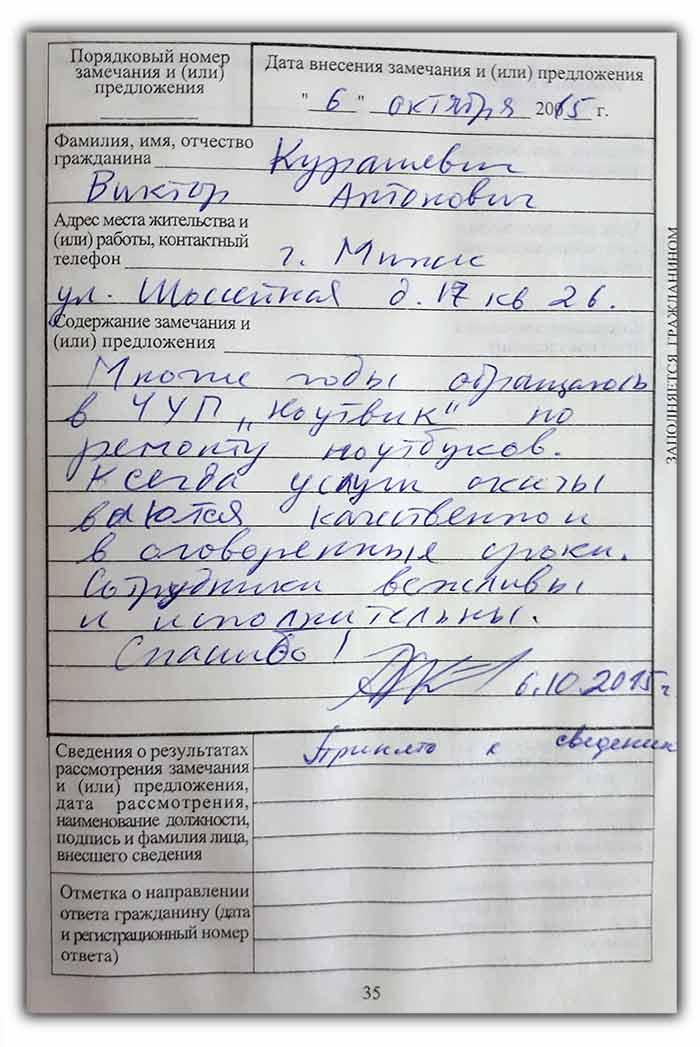 Порядковый номер
замечания и (или)
предложения
Дата внесения замечания и (или) предложения
" 6 " октября 2015 г.
Фамилия, имя, отчество
гражданина Курашевич
Виктор Антонович
Адрес места жительства и
(или) работы, контактный
телефон г. Минск
ул. Шоссейная д. 17 кв 26.
Содержание замечания и
(или) предложения
Многие годы обращаюсь
в ЧУП „Ноутвик“ по
ремонту ноутбуков.
Всегда услуги оказы
ваются качественно и
в оговоренные сроки.
Сотрудники вежливы
и исполнительны.
Спасибо!
6.10.2015г
ЗАПОЛНЯЕТСЯ ГРАЖДАНИНОМ
Сведения о результатах
рассмотрения замечания
и (или) предложения,
дата рассмотрения,
наименование должности,
подпись и фамилия лица,
внесшего сведения
Принято к сведению
Отметка о направлении
ответа гражданину (дата
и регистрационный номер
ответа)
35